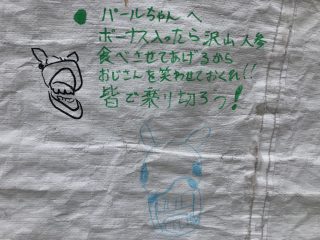 ● パールちゃんへ
ボーナス入ったら沢山人参
食べさせてあげるから
おじさんを笑わせておくれ!!
皆で乗り切ろう!